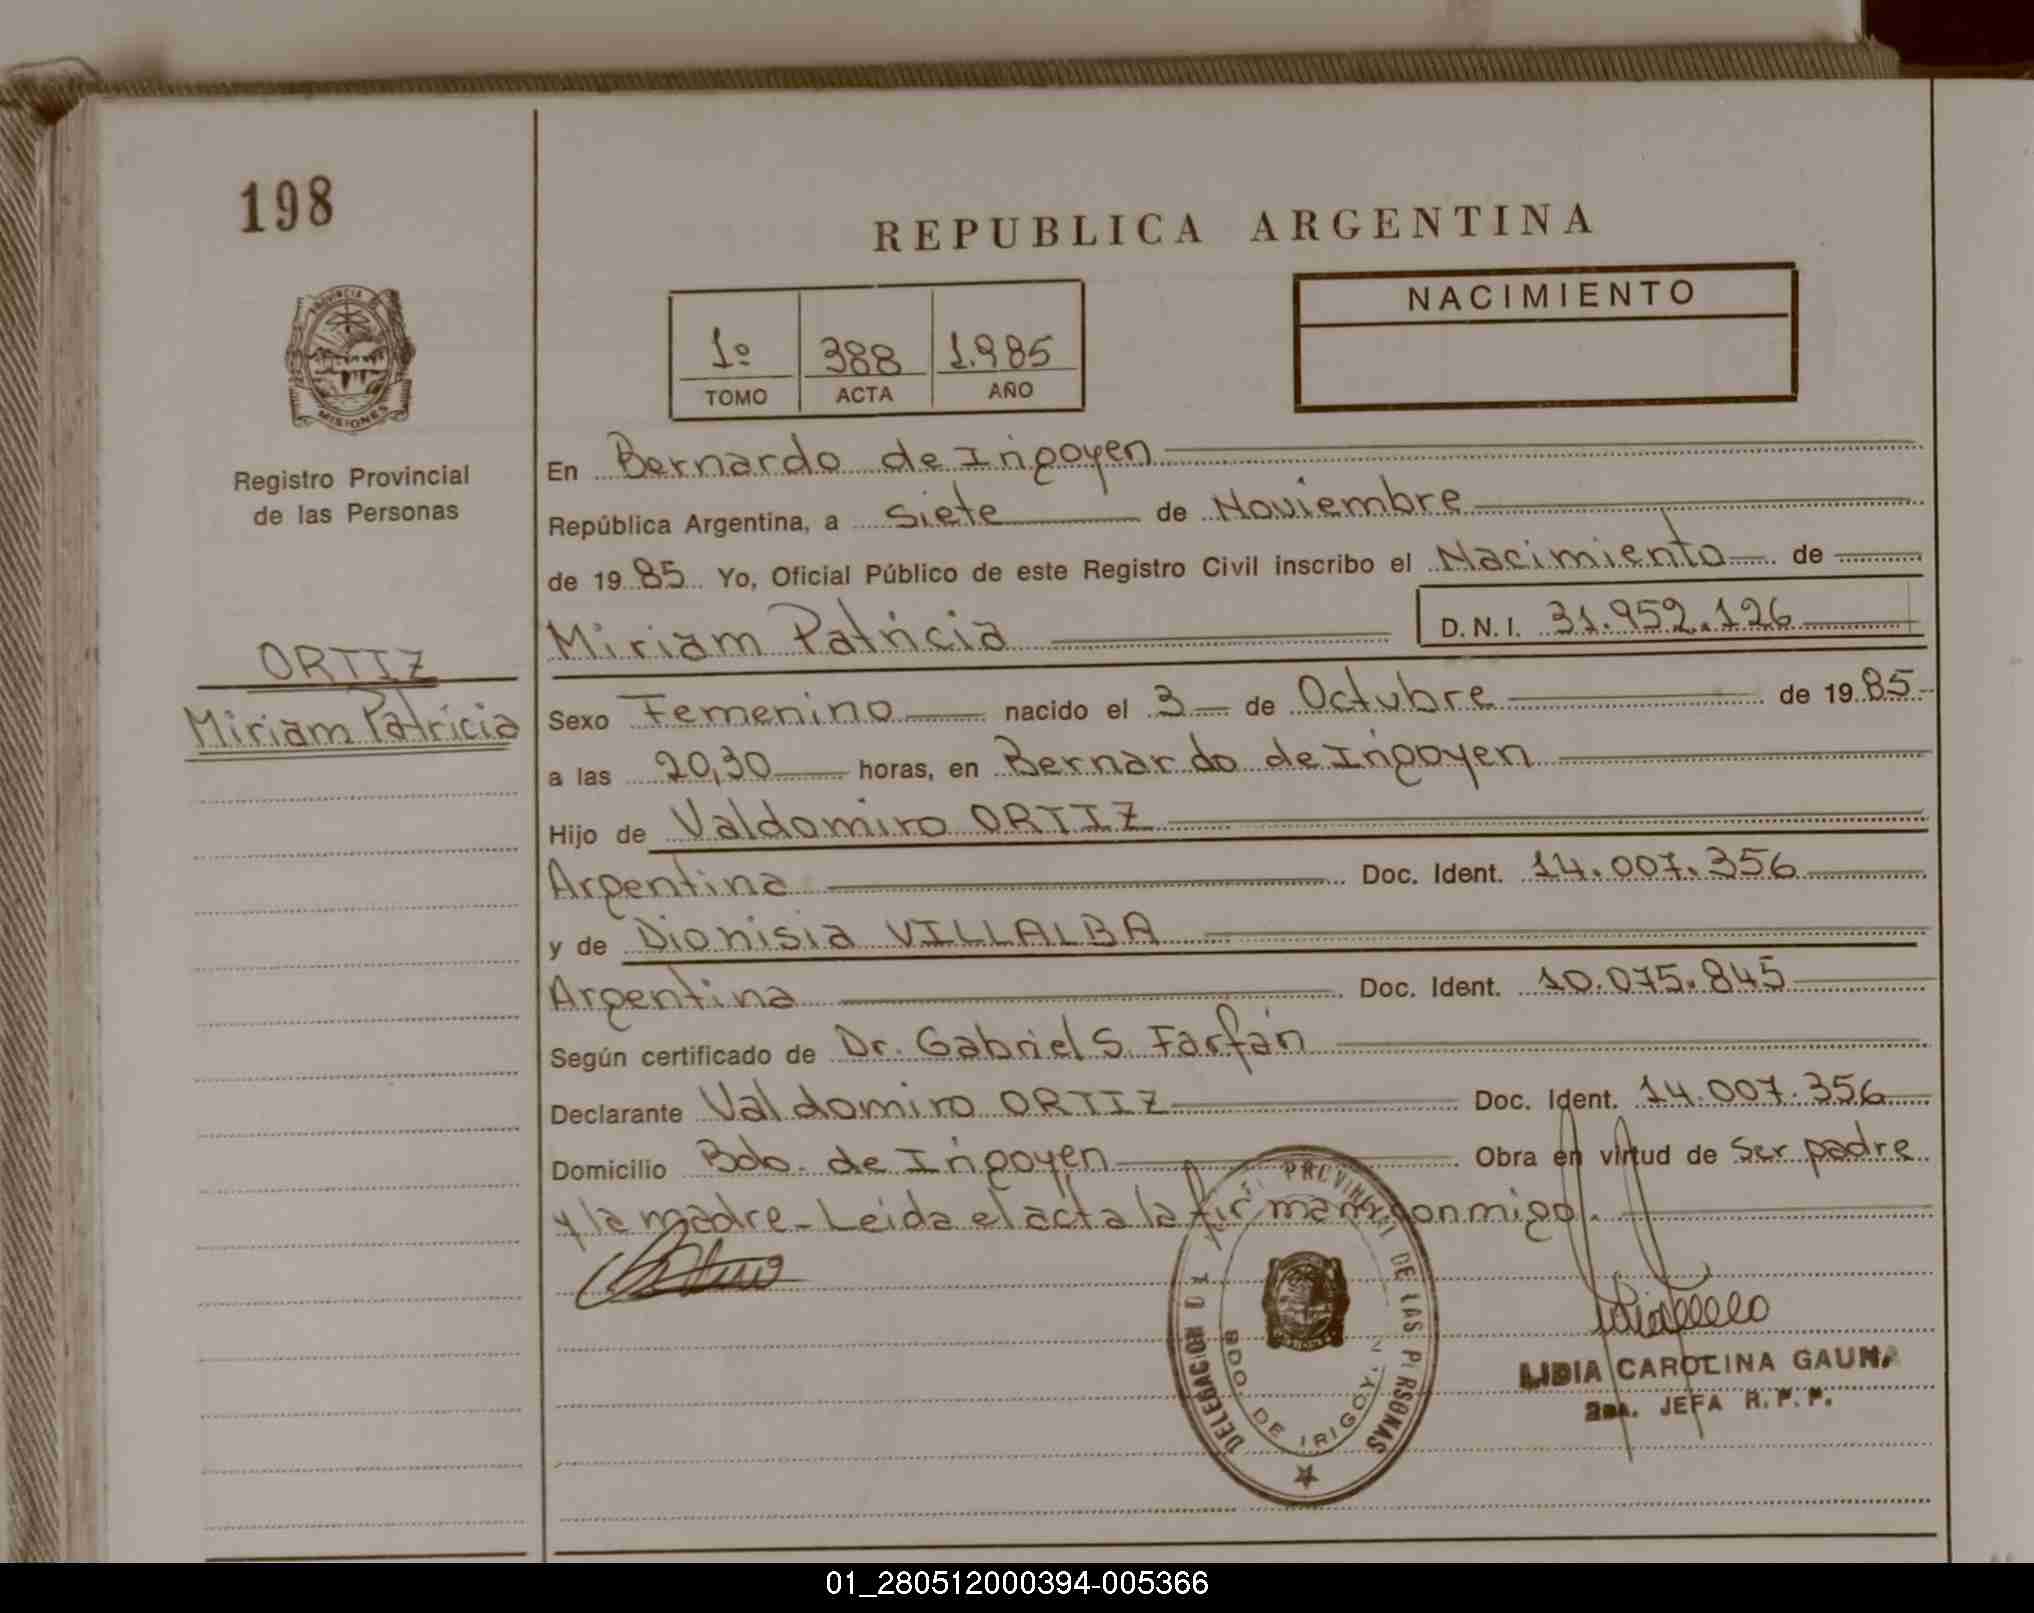 198
REPUBLICA ARGENTINA
NACIMIENTO
1º 388 1.985
TOMO ACTA AÑO
PROVINCIA DE
MISIONES
Registro Provincial
de las Personas
ORTIZ
Miriam Patricia
En Bernardo de Irigoyen
República Argentina, a siete de Noviembre
de 1985 Yo, Oficial Público de este Registro Civil inscribo el Nacimiento de
Miriam Patricia D.N.I. 31.952.126
Sexo Femenino nacido el 3 de Octubre de 1985
a las 20,30 horas, en Bernardo de Irigoyen
Hijo de Valdomiro ORTIZ
Argentina Doc. Ident. 14.007.356
y de Dionisia VILLALBA
Argentina Doc. Ident. 10.075.845
Según certificado de Dr. Gabriel S. Farfán
Declarante Valdomiro ORTIZ Doc. Ident. 14.007.356
Domicilio Bdo. de Irigoyen Obra en virtud de ser padre
y la madre - Leida el acta la firman conmigo.
DELEGACION DE PROVINCIAL DE LAS PERSONAS
BDO. DE IRIGOYEN
LIDIA CAROLINA GAUNA
2da. JEFA R.P.P.
01_280512000394-005366